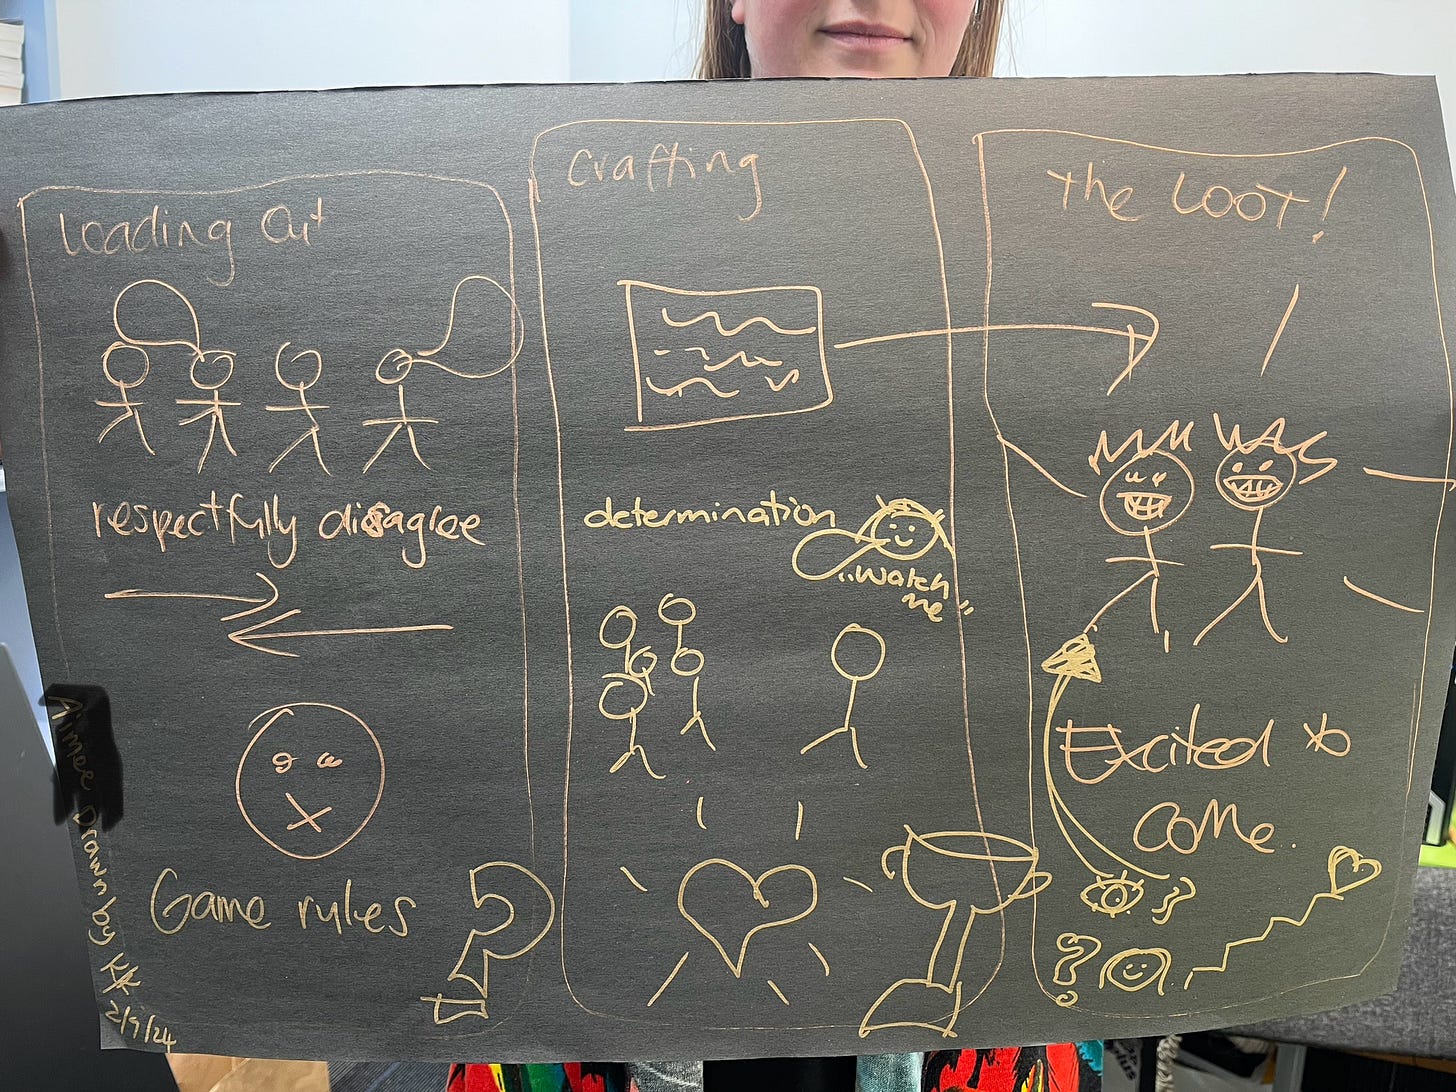 Loading Out
respectfully disagree
Game rules
?
Aimee
Drawn by KK
2/9/24
Crafting
determination
"watch
me"
The LOOT!
Excited to
come.
?
?